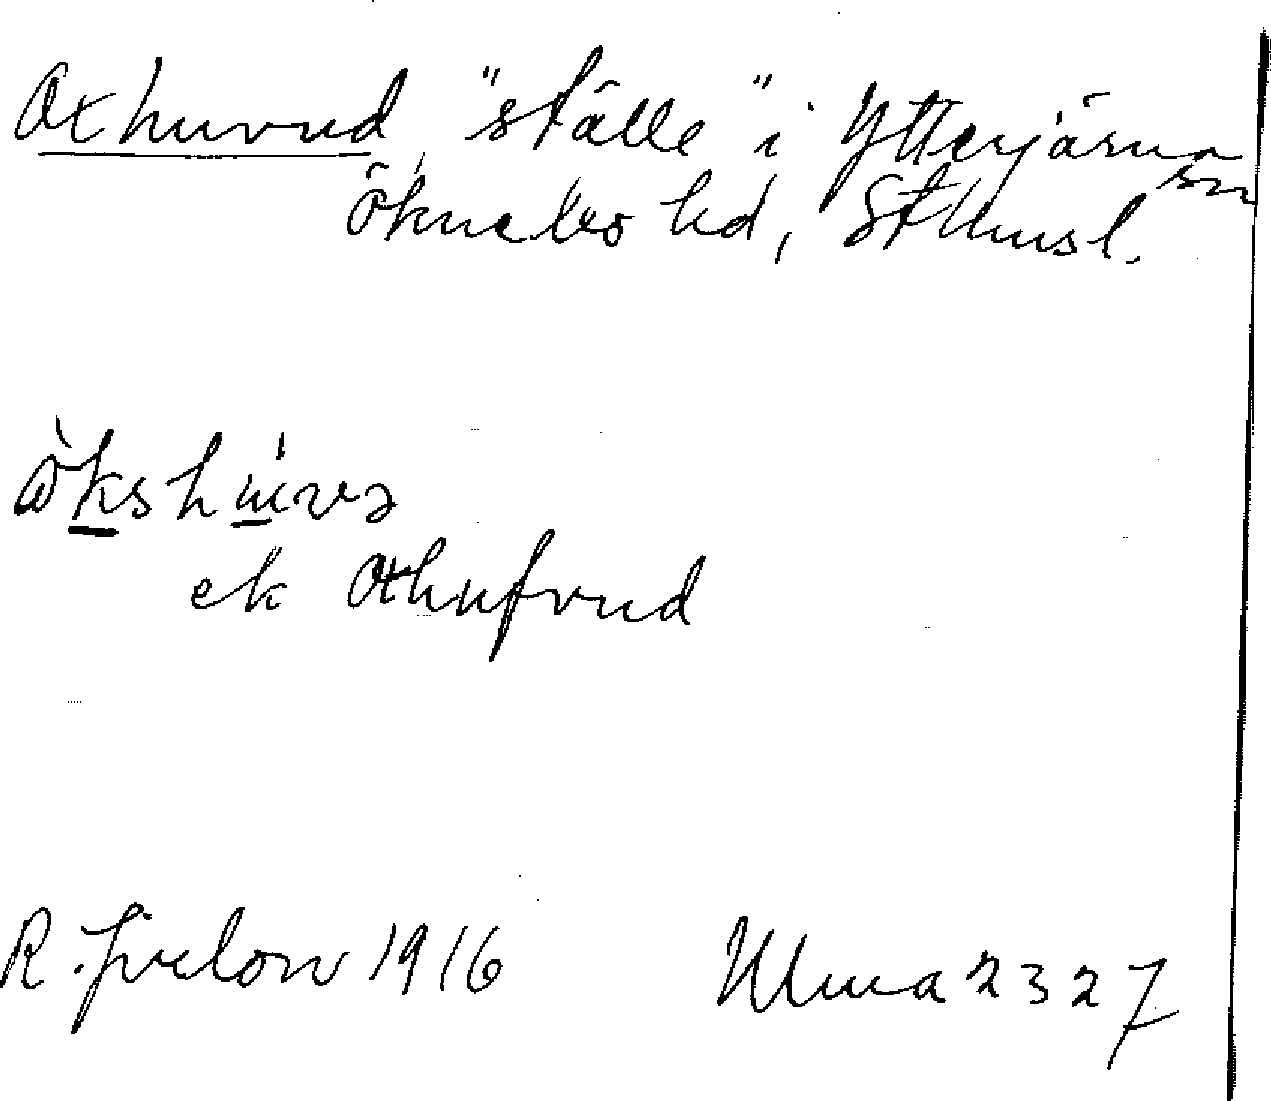 Oxhuvud, "ställe" i Ytterjärna sn
Öknebo hd, Sthmsl.
ek Oxhufvud
R. 1916 Ulma 2327